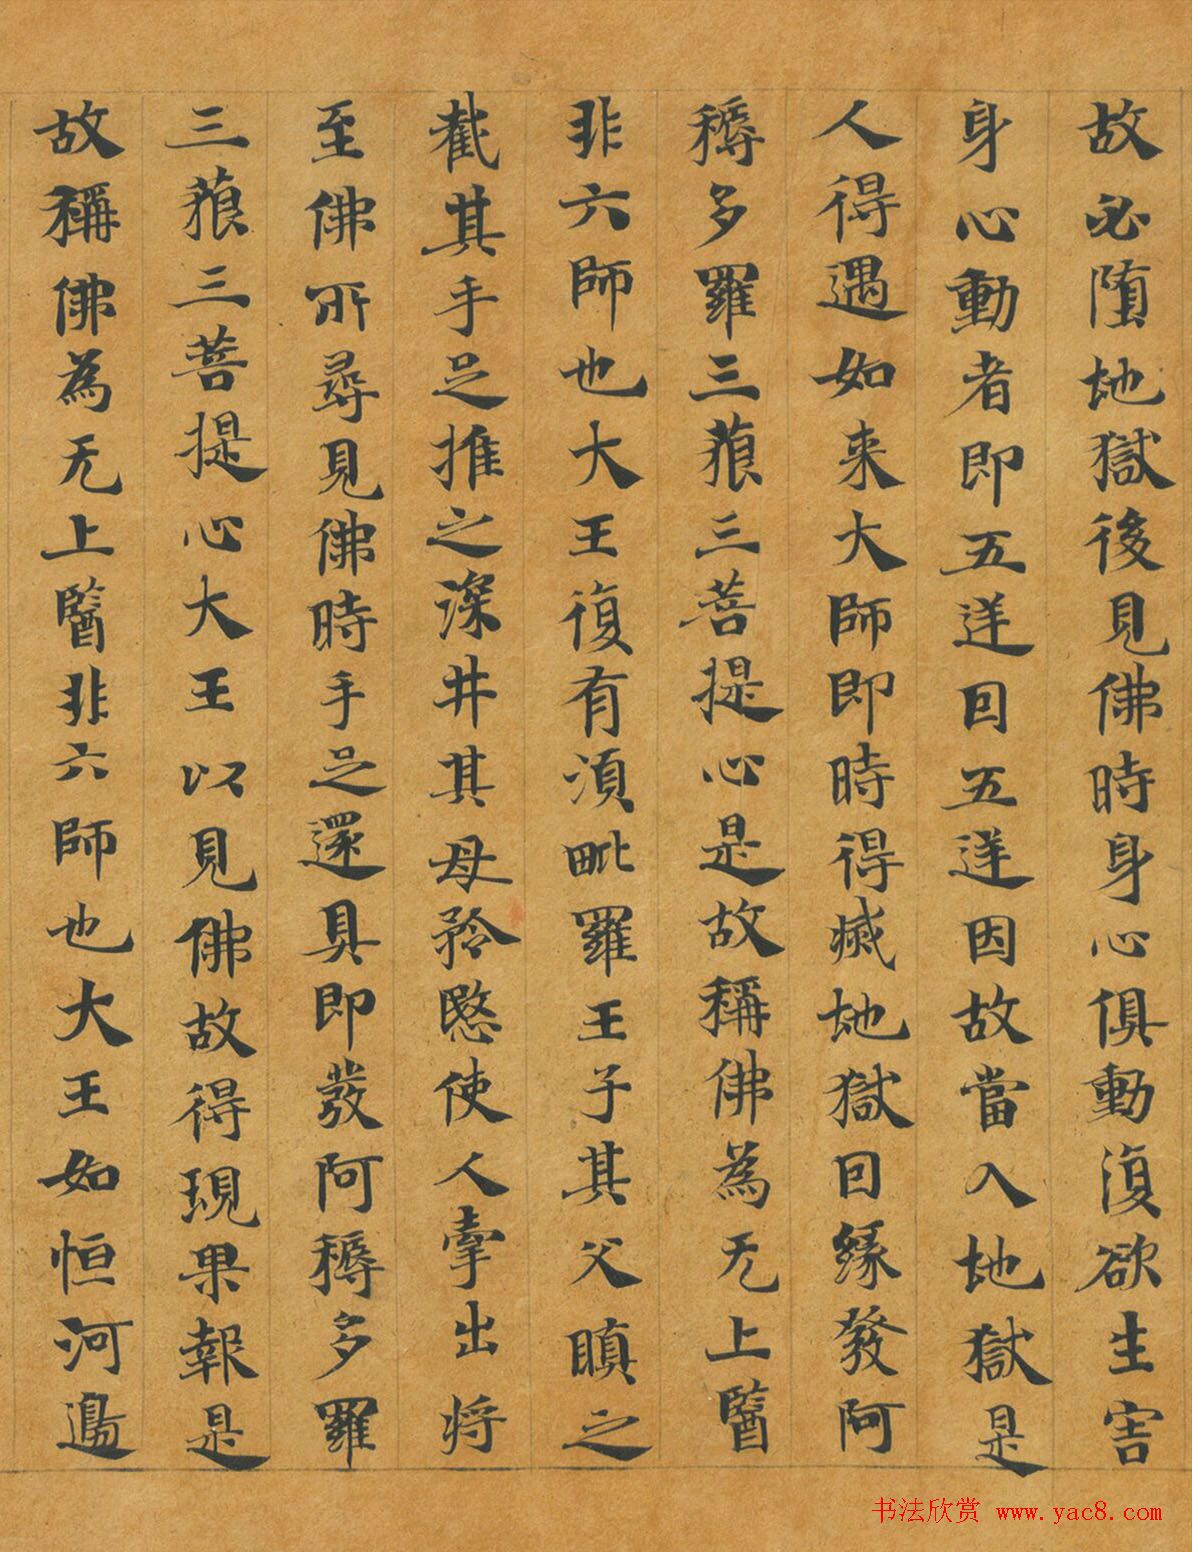 故必堕地獄後見佛時身心俱動復欲生害
身心動者即五逆因五逆因故當入地獄是
人得遇如来大師即時得滅地獄因緣發阿
耨多羅三藐三菩提心是故稱佛為无上醫
非六師也大王復有湏毗羅王子其父瞋之
截其手足推之深井其母矜愍使人牽出将
至佛所尋見佛時手足還具即發阿耨多羅
三藐三菩提心大王以見佛故得現果報是
故稱佛為无上醫非六師也大王如恒河邊
书法欣赏 www.yac8.com